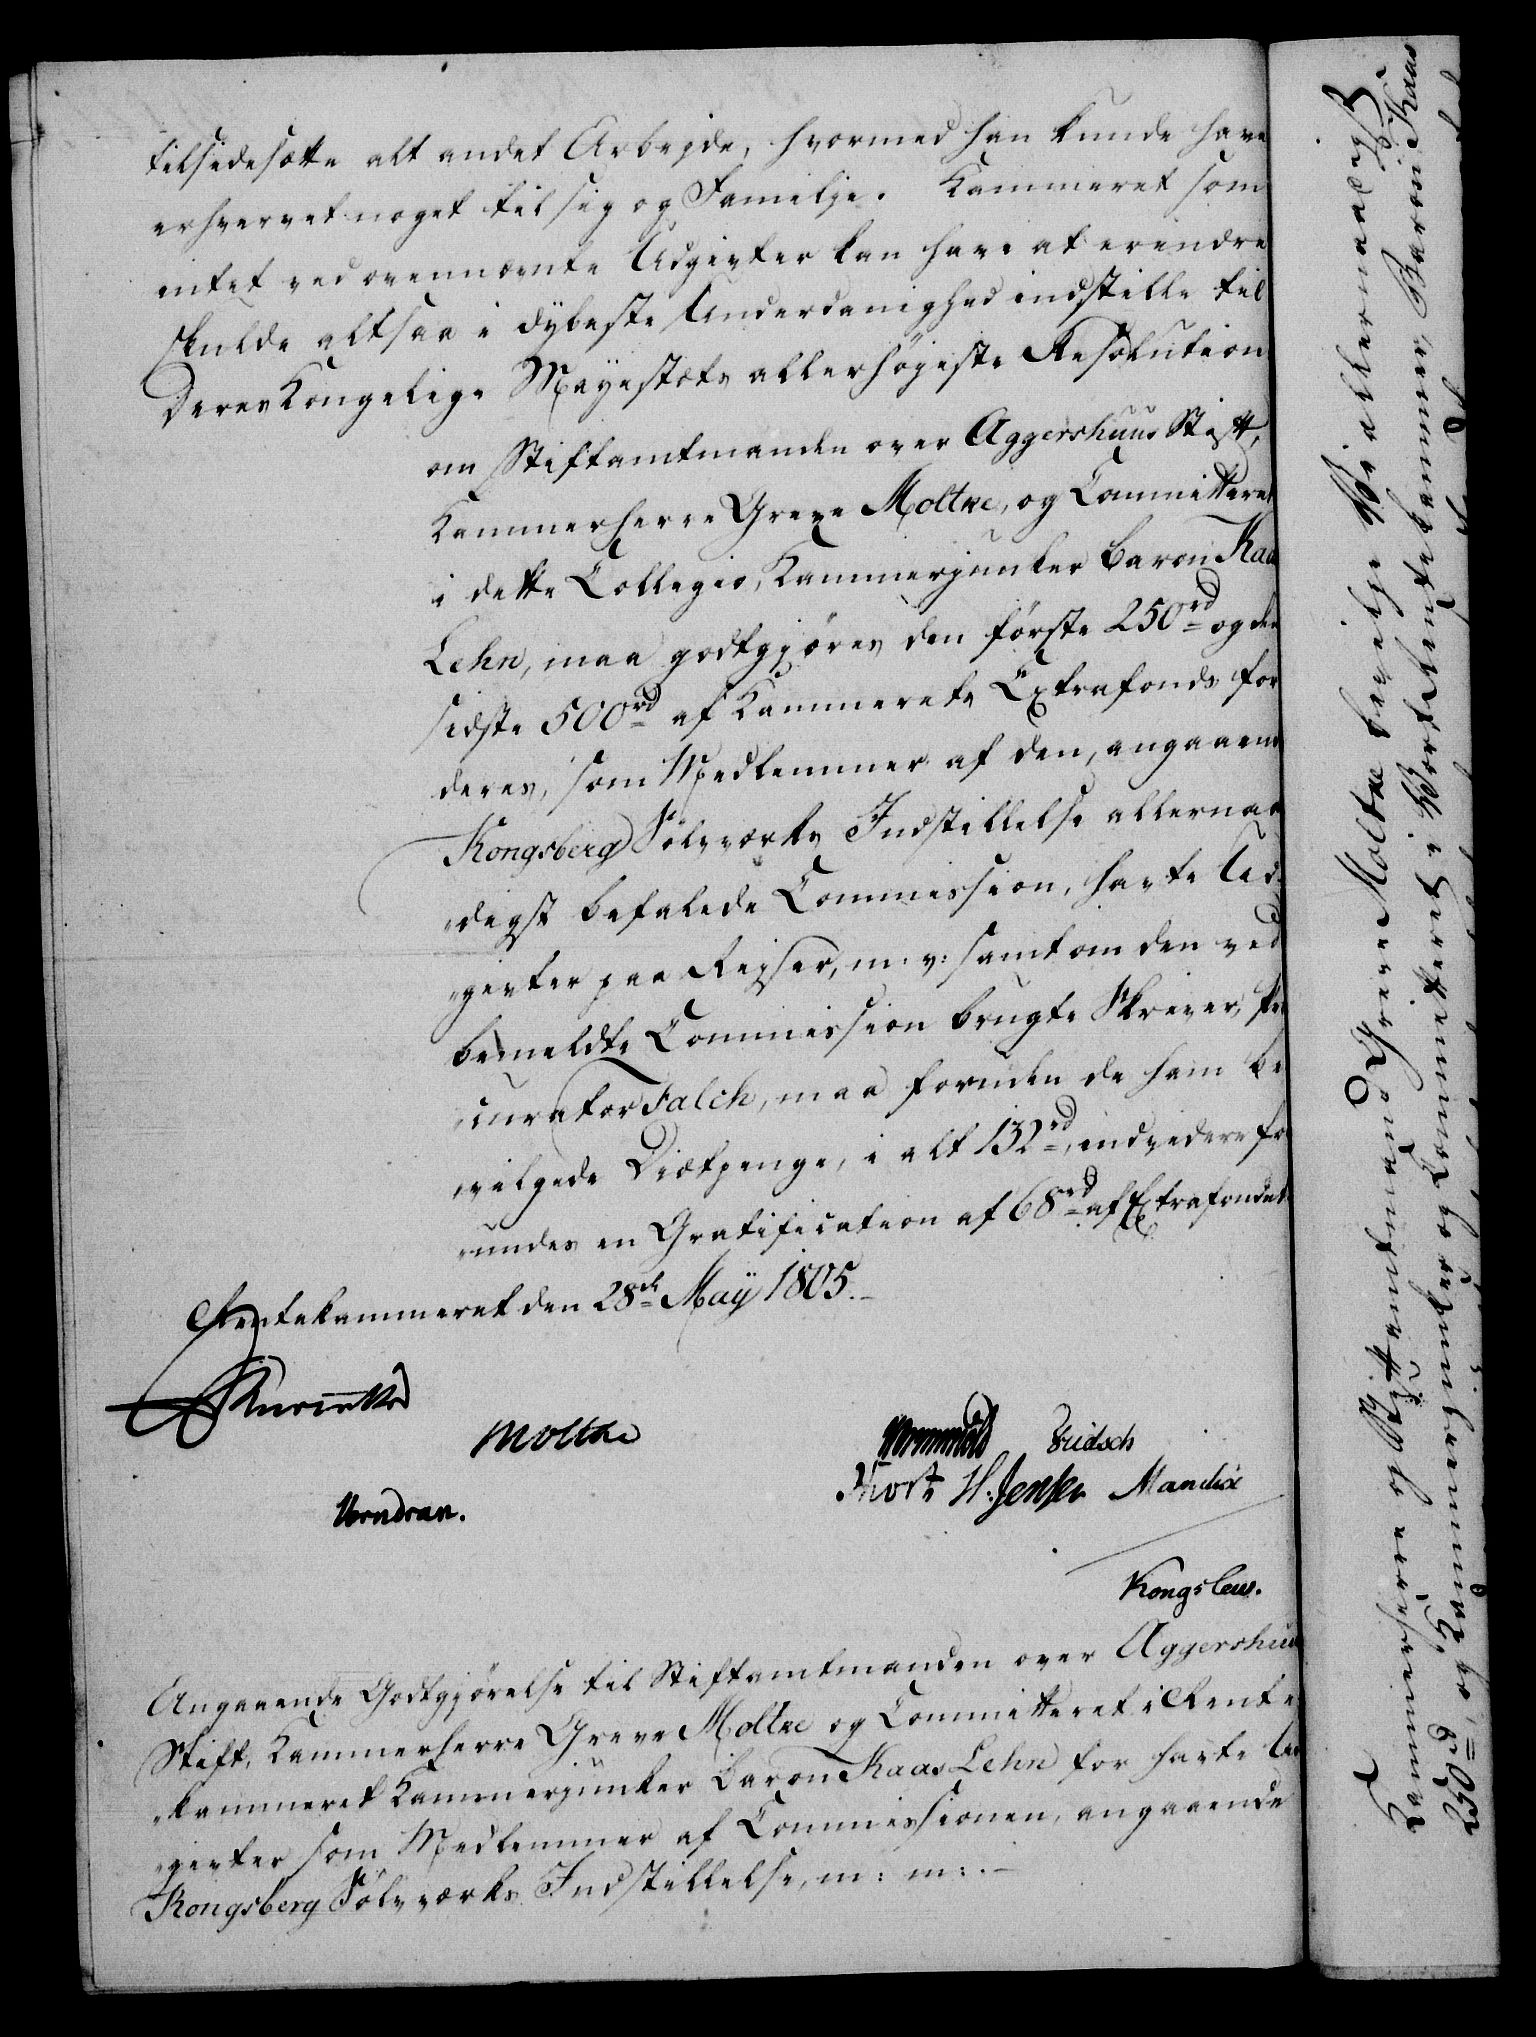 tilsidesætte alt andet Arbejde, hvormed han kunde have
erhvervet noget til sig og Familje. Kammeret som
intet ved ovennævnte Udgivter kan have at erindre
skulde altsaa i dybeste Underdanighed indstille til
Deres Kongelige Mayestæts allerhøyeste Resolution
om Stiftamtmanden over Aggershuus Stift,
Kammerherre Greve Moltke, og Committeret
i dette Collegio, Kammerjunker Baron Kaas
Lehn, maa godtgjøres den første 250 rd og den
sidste 500 rd af Kammerets Extrafonds for
deres, som Medlemmer af den, angaaende
Kongsberg Sølvværks Indstillelse allernaa
digst befalede Commission, havte Ud-
givter paa Rejser, m: v: samt om den ved
bemeldte Commission brugte Skriver, Pro
curator Falch, maa foruden de ham be
vilgede Diætpenge, i alt 132 rd, endvidere for
undes en Gratification af 68 rd af Extrafondet
Rentekammeret den 28de May 1805.
Moltke
Wormskiold Fridsch
H: Jensen Mandix
Wendran.
Kongslew.
Angaaende Godtgjørelse til Stiftamtmanden over Aggershuus
Stift, Kammerherre Greve Moltke og Committeret i Rente
kammeret Kammerjunker Baron Kaas Lehn for havte Ud
givter som Medlemmer af Commissionen, angaaende
Kongsberg Sølvværks Indstillelse, m: m:
Vi allernaadigst
Kammerherre og Stiftamtmand Greve Moltke
250 rd, og Kammerjunker og Committeret i Vort Rentekammer, Baron Kaas